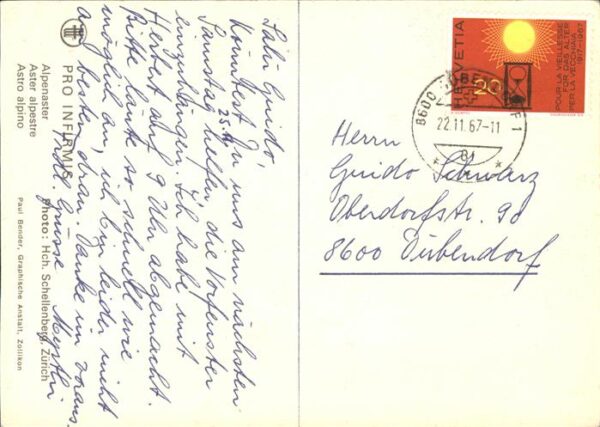 PRO INFIRMIS
Alpenaster
Aster alpestre
Astro alpino
Photo: Hch. Schellenberg, Zürich
Paul Bender, Graphische Anstalt, Zollikon
Salü Guido,
Könntest Du uns am nächsten
Samstag 25.11. helfen, die Vorfenster
einzuhängen. Ich habe mit
Herbert auf 9 Uhr abgemacht.
Bitte läute so schnell wie
möglich an, ich bin leider nicht
am besten dran. Danke im voraus.
Frdl. Grüsse
HELVETIA
20
POUR LA VIEILLESSE
FÜR DAS ALTER
PER LA VECCHIAIA
1917-1967
8600 DÜBENDORF 1
22.11.67-11
Herrn
Guido Schwarz
Oberdorfstr. 98
8600 Dübendorf